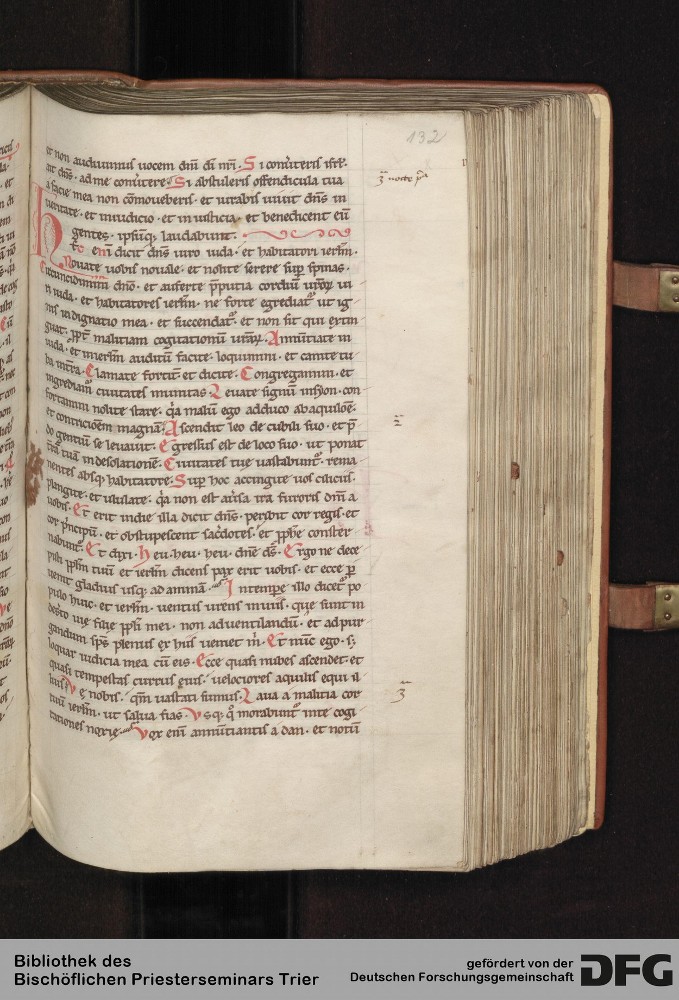 132
et non audiuimus uocem dñi di nr̃i. Si conũteris isrł.
ait dñs. ad me conũtere. Si abstuleris offendicula tua
a facie mea non cõmoueberis. et iurabis uiuit dñs in
ueritate. et in iudicio. et in iusticia. et benedicent eũ
gentes. ipsũq; laudabunt.
Hec enĩ dicit dñs uiro iuda. et habitatori ierłm.
Nouate uobis nouale. et nolite serere sup spinas.
Circumcidimini dño. et auferte p̃putia cordiũ ur̃oꝝ ui
ri iuda. et habitatores ierłm. ne forte egrediat᷑ ut ig
nis indignatio mea. et succendat᷑. et non sit qui extin
guat. ꝓpt̃ malitiam cogitationũ ur̃aꝝ. Annũtiate in
iuda. et in ierłm auditũ facite. loquimini. et canite tu
ba in t̃ra. Clamate fortit̃ et dicite. Congregamini. et
ingrediam᷑ ciuitates munitas. Leuate signũ in syon. con
fortamini nolite stare. q̃a malũ ego adduco ab aquilõe.
et contricioẽm magnã. Ascendit leo de cubili suo. et p̃
do gentiũ se leuauit. Egressus est de loco suo. ut ponat
t̃rã tuã in desolationẽ. Ciuitates tue uastabunt᷑. rema
nentes absq; habitatore. Sup hoc accingite uos ciliciis.
plangite. et ululate. q̃a non est au̾sa ira furoris dñi a
uobis. Et erit in die illa dicit dñs. peribit cor regis. et
cor p̃ncipũ. et obstupescent sac̾dotes. et ꝓphe conster
nabunt᷑. Et dixi. heu. heu. heu. dñe ds̃. Ergo ne dece
pisti ppłm tuũ et ierłm dicens pax erit uobis. et ecce p̱
uenit gladius usq; ad animã. In tempore illo dicet᷑ po
pulo huic. et ierłm. uentus urens in uiis. que sunt in
des̾to uie filie ppłi mei. non ad uentilandũ. et ad pur
gandum. sp̃s plenus ex his ueniet m̃. Et nũc ego. s;
loquar iudicia mea cũ eis. Ecce quasi nubes ascendet. et
quasi tempestas currus eius. uelociores aquilis equi il
lius. Ve nobis. qm̃ uastati sumus. Laua a malitia cor
tuũ ierłm. ut salua fias. Vsq; q̊ morabunt᷑ in te cogi
tationes noxie. Vox enĩ annũtiantis a dan. et notũ
2
3
Bibliothek des
Bischöflichen Priesterseminars Trier
gefördert von der
Deutschen Forschungsgemeinschaft
DFG